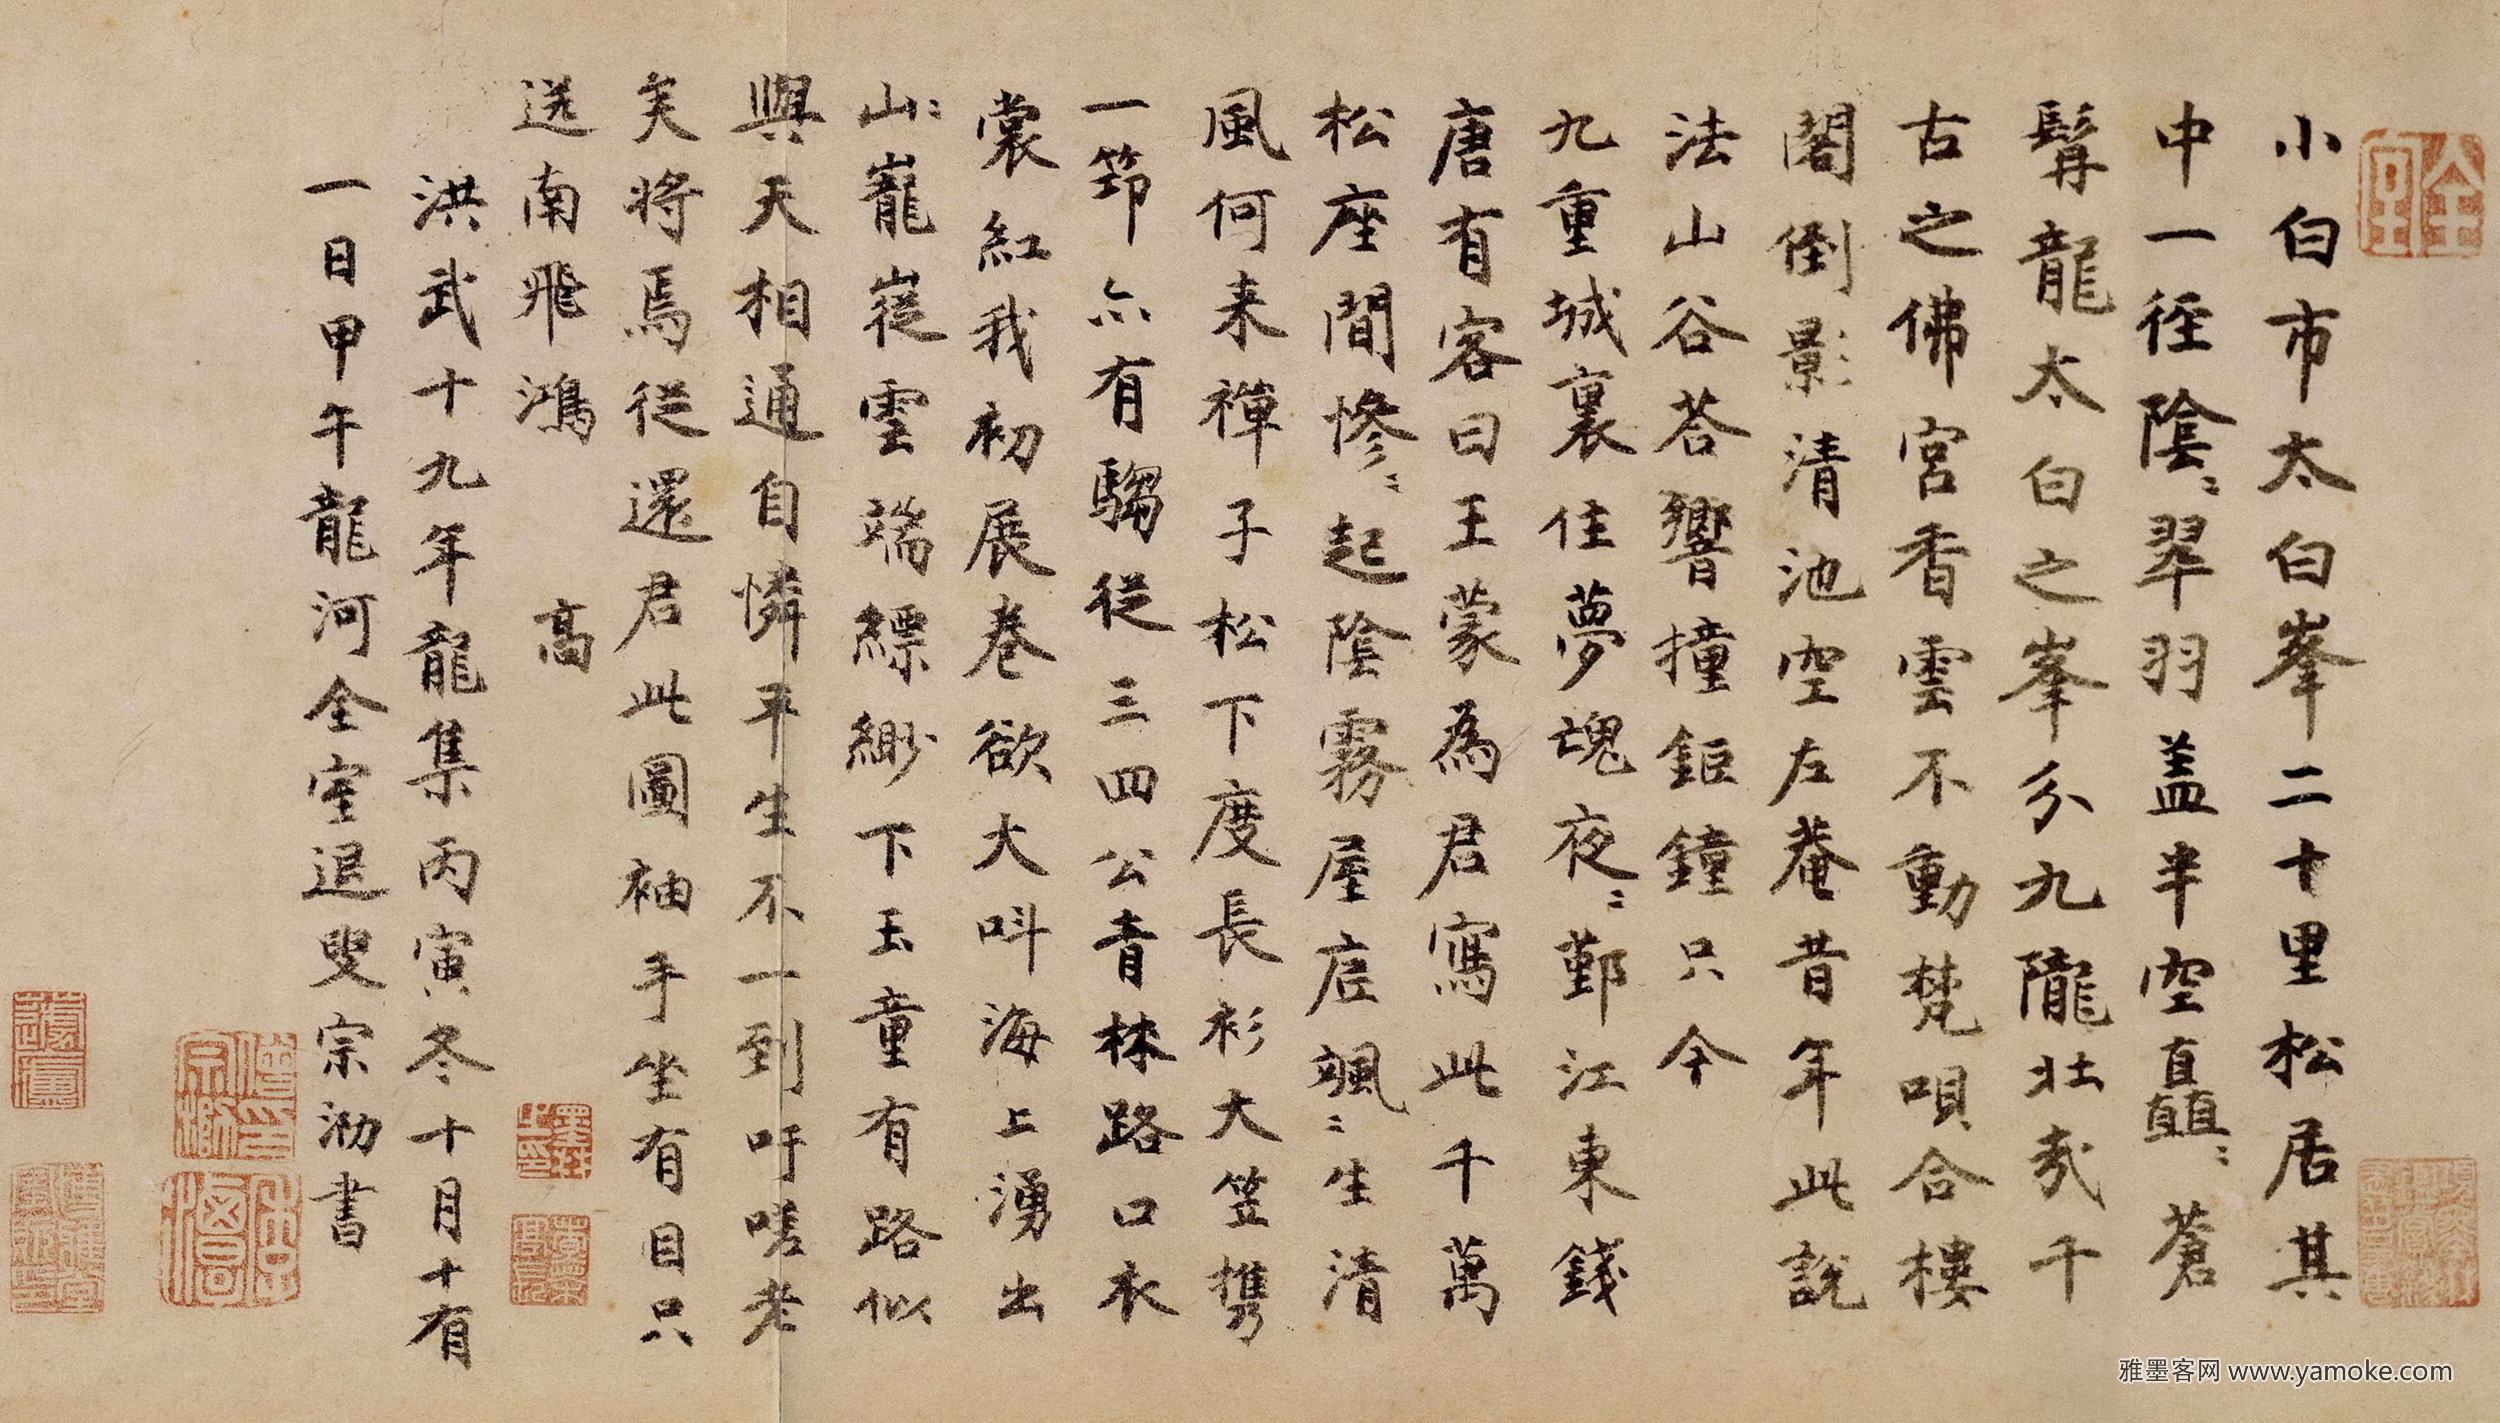 小白市太白峯二十里松居其
中一徑陰〻翠羽盖半空直矗〻蒼
髯龍太白之峯分九隴壯哉千
古之佛宮香雲不動梵唄合樓
閣倒影清池空左菴昔年此說
法山谷荅響撞鉅鐘只今
九重城裏住夢魂夜〻鄞江東錢
唐有客曰王蒙為君寫此千萬
松座間慘〻起陰霧屋底颯〻生清
風何来禪子松下度長衫大笠攜
一筇亦有騶從三四公青林路口衣
裳紅我初展卷欲大叫海上湧出
山〻巃嵸雲端縹緲下玉童有路似
與天相通自憐平生不一到吁嗟老
矣將焉從還君此圖袖手坐有目只
送南飛鴻 高
洪武十九年龍集丙寅冬十月十有
一日甲午龍河全室退叟宗泐書
全室
雅墨客网 www.yamoke.com